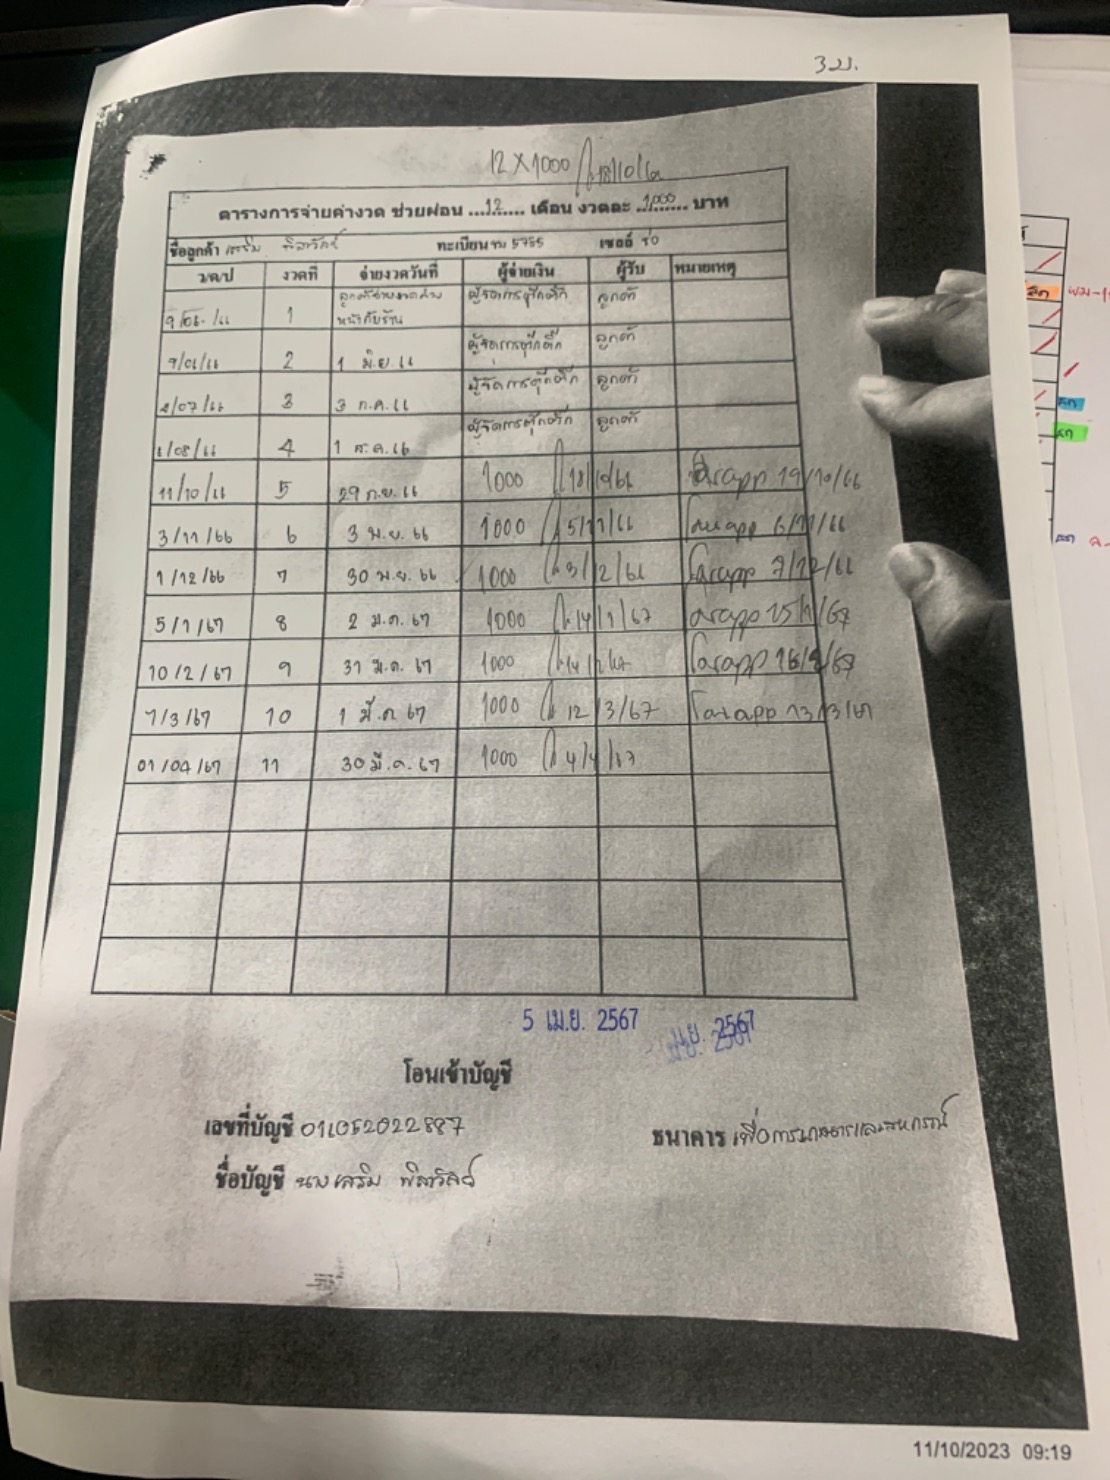 3ม.
12 X 1000 18/10/6
ตารางการจ่ายค่างวด ช่วยผ่อน ...12...... เดือน งวดละ .1,000...... บาท
ชื่อลูกค้า เสริม ทะเบียน 5755 เซลล์
ว/ด/ป งวดที่ จ่ายงวดวันที่ ผู้จ่ายเงิน ผู้รับ หมายเหตุ
1 ผู้จัดการตุ๊กติ๊ก ลูกค้า
หน้ากับร้าน
9/06/66 2 1 มิ.ย. 66 ผู้จัดการตุ๊กติ๊ก ลูกค้า
/07/66 3 3 ก.ค. 66 ผู้จัดการตุ๊กติ๊ก ลูกค้า
/08/66 4 1 ส.ค. 66 ผู้จัดการตุ๊กติ๊ก ลูกค้า
11/10/66 5 29 ก.ย. 66 1000 18/10/66 โอนapp 19/10/66
3/11/66 6 3 พ.ย. 66 1000 5/11/66 โอนapp 6/11/66
1/12/66 7 30 พ.ย. 66 1000 3/12/66 โอนapp 7/12/66
5/1/67 8 2 ม.ค. 67 1000 14/1/67 โอนapp 15/1/67
10/2/67 9 31 ม.ค. 67 1000 14/2/67 โอนapp 16/2/67
7/3/67 10 1 มี.ค 67 1000 12/3/67 โอนapp 13/3/67
01/04/67 11 30 มี.ค. 67 1000 4/4/67
5 เม.ย. 2567
โอนเข้าบัญชี
เลขที่บัญชี 011052022887 ธนาคาร เพื่อการเกษตรและสหกรณ์
ชื่อบัญชี นาง เสริม
11/10/2023 09:19